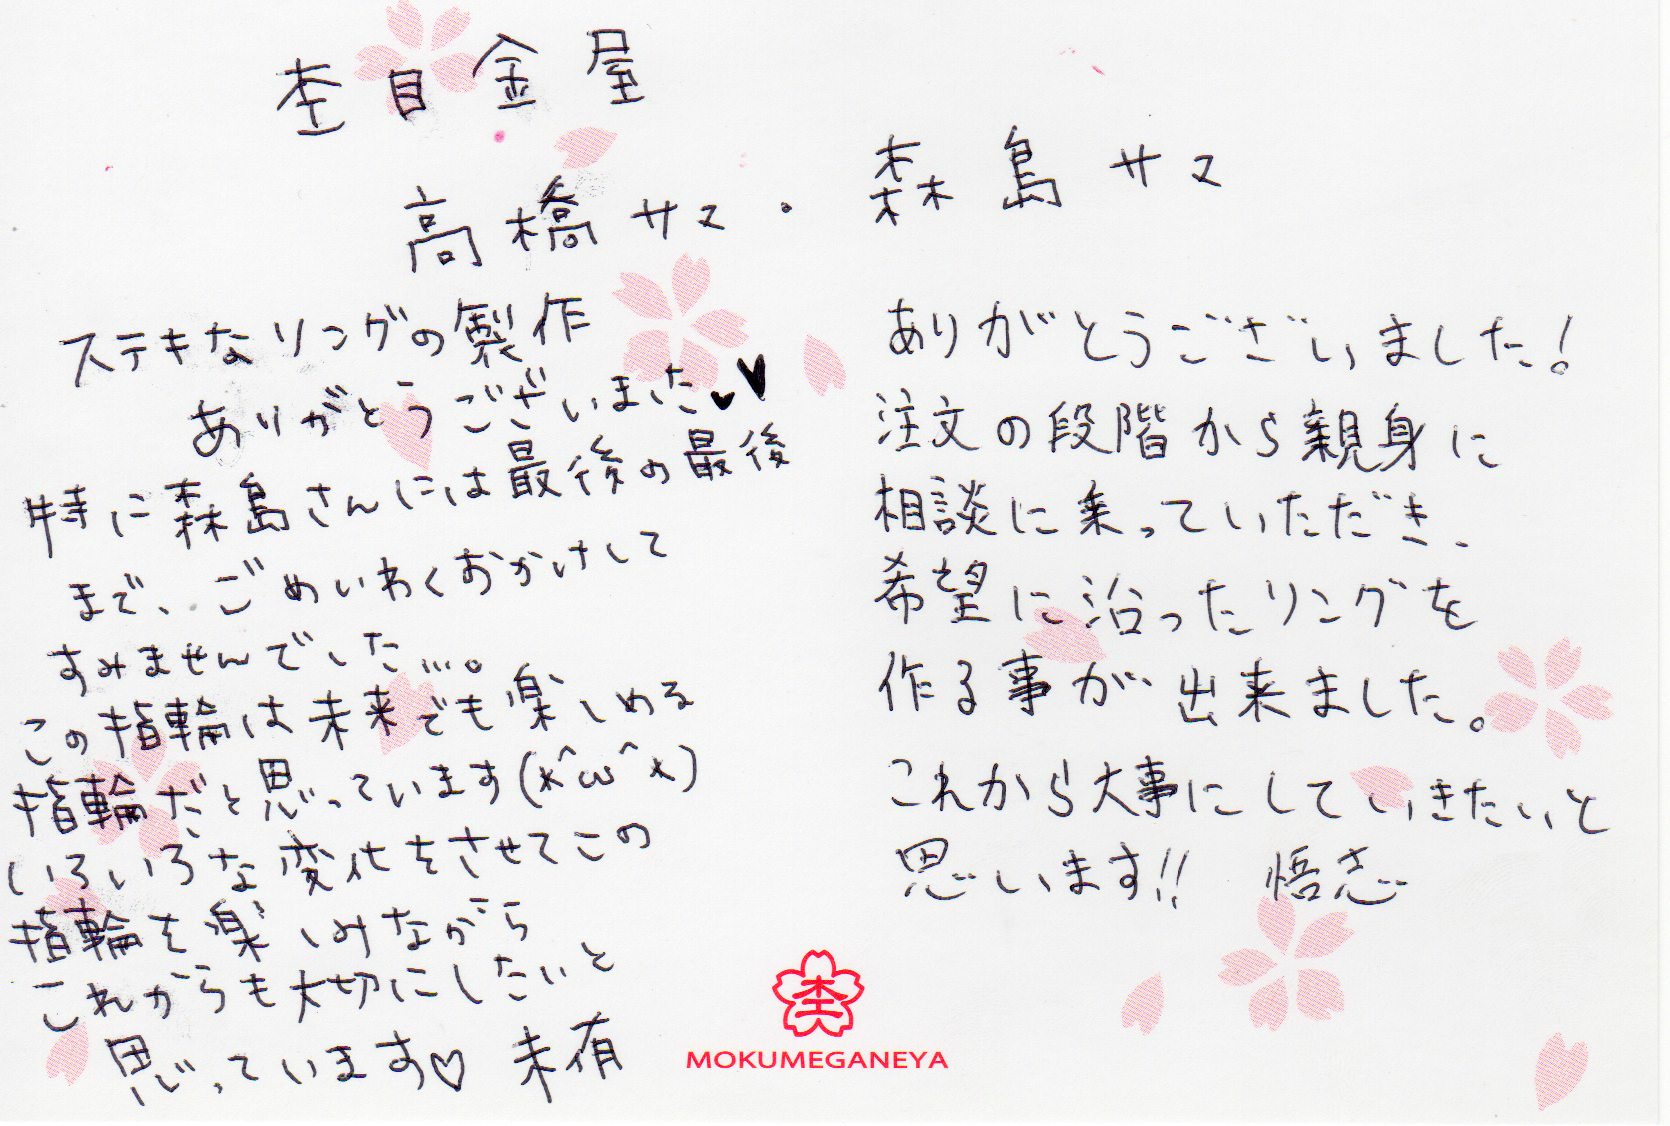 杢目金屋
高橋サマ・森島サマ
ステキなリングの製作
ありがとうございました♥♥
特に森島さんには最後の最後
まで、ごめいわくおかけして
すみませんでした…。
この指輪は未来でも楽しめる
指輪だと思っています(*^ω^*)
いろいろな変化をさせてこの
指輪を楽しみながら
これからも大切にしたいと
思っています♡ 未有
ありがとうございました!
注文の段階から親身に
相談に乗っていただき、
希望に沿ったリングを
作る事が出来ました。
これから大事にしていきたいと
思います!! 悟志
杢
MOKUMEGANEYA